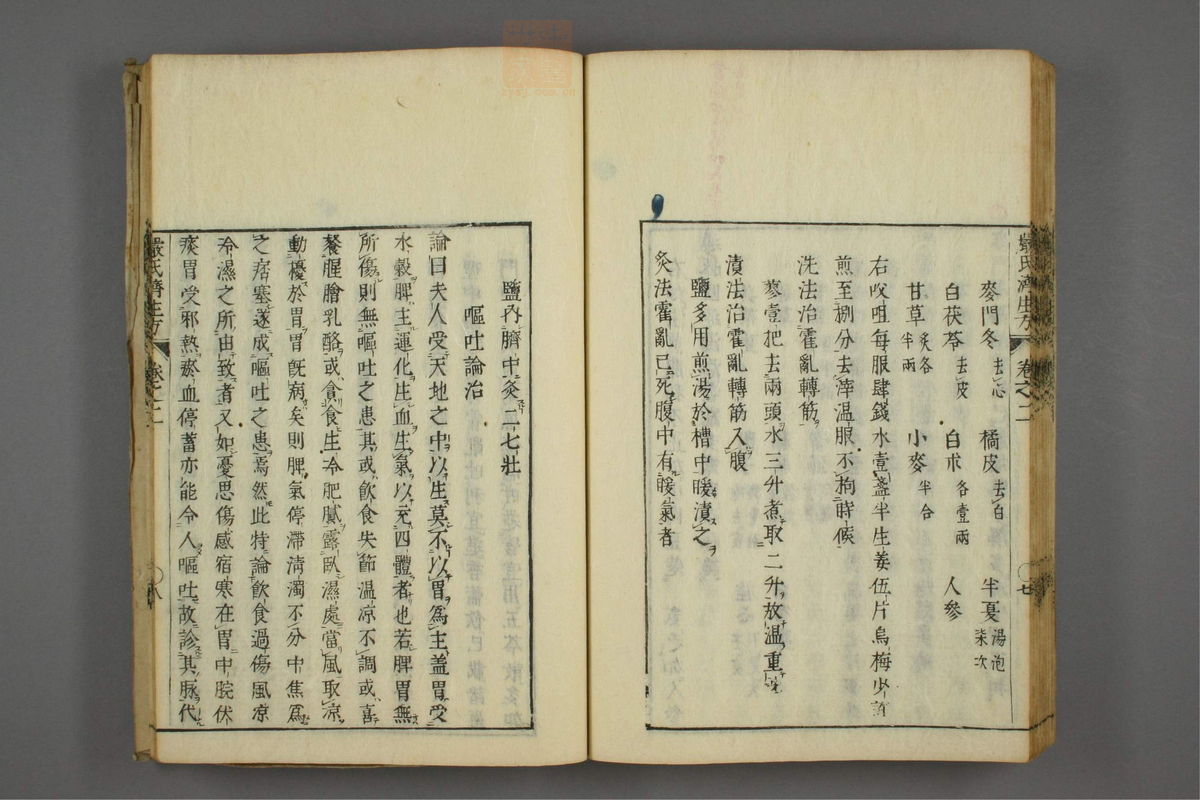 嚴氏濟生方 卷之二 七
麥門冬去心 橘皮去白 半夏湯泡柒次
白茯苓去皮 白朮各壹兩 人參
甘草炙各半兩 小麥半合
右㕮咀每服肆錢水壹盞半生姜伍片烏梅少許
煎至捌分去滓温服不拘時候
洗法治霍亂轉筋
蓼壹把去兩頭水三升煮取二升放温重洗
漬法治霍亂轉筋入腹
鹽多用煎湯於槽中暖漬之
灸法霍亂已死腹中有暖氣者
鹽內臍中灸二七壯
嘔吐論治
論曰夫人受天地之中以生莫不以胃爲主盖胃受
水穀脾主運化生血生氣以充四體者也若脾胃無
所傷則無嘔吐之患其或飲食失節温凉不調或喜
餐腥膾乳酪或貪食生冷肥膩露臥濕處當風取凉
動擾於胃胃旣病矣則脾氣停滯淸濁不分中焦爲
之痞塞遂成嘔吐之患焉然此特論飲食過傷風凉
冷濕之所由致者又如憂思傷感宿寒在胃中脘伏
痰胃受邪熱瘀血停蓄亦能令人嘔吐故診其脉代
嚴氏濟生方 卷之二 八